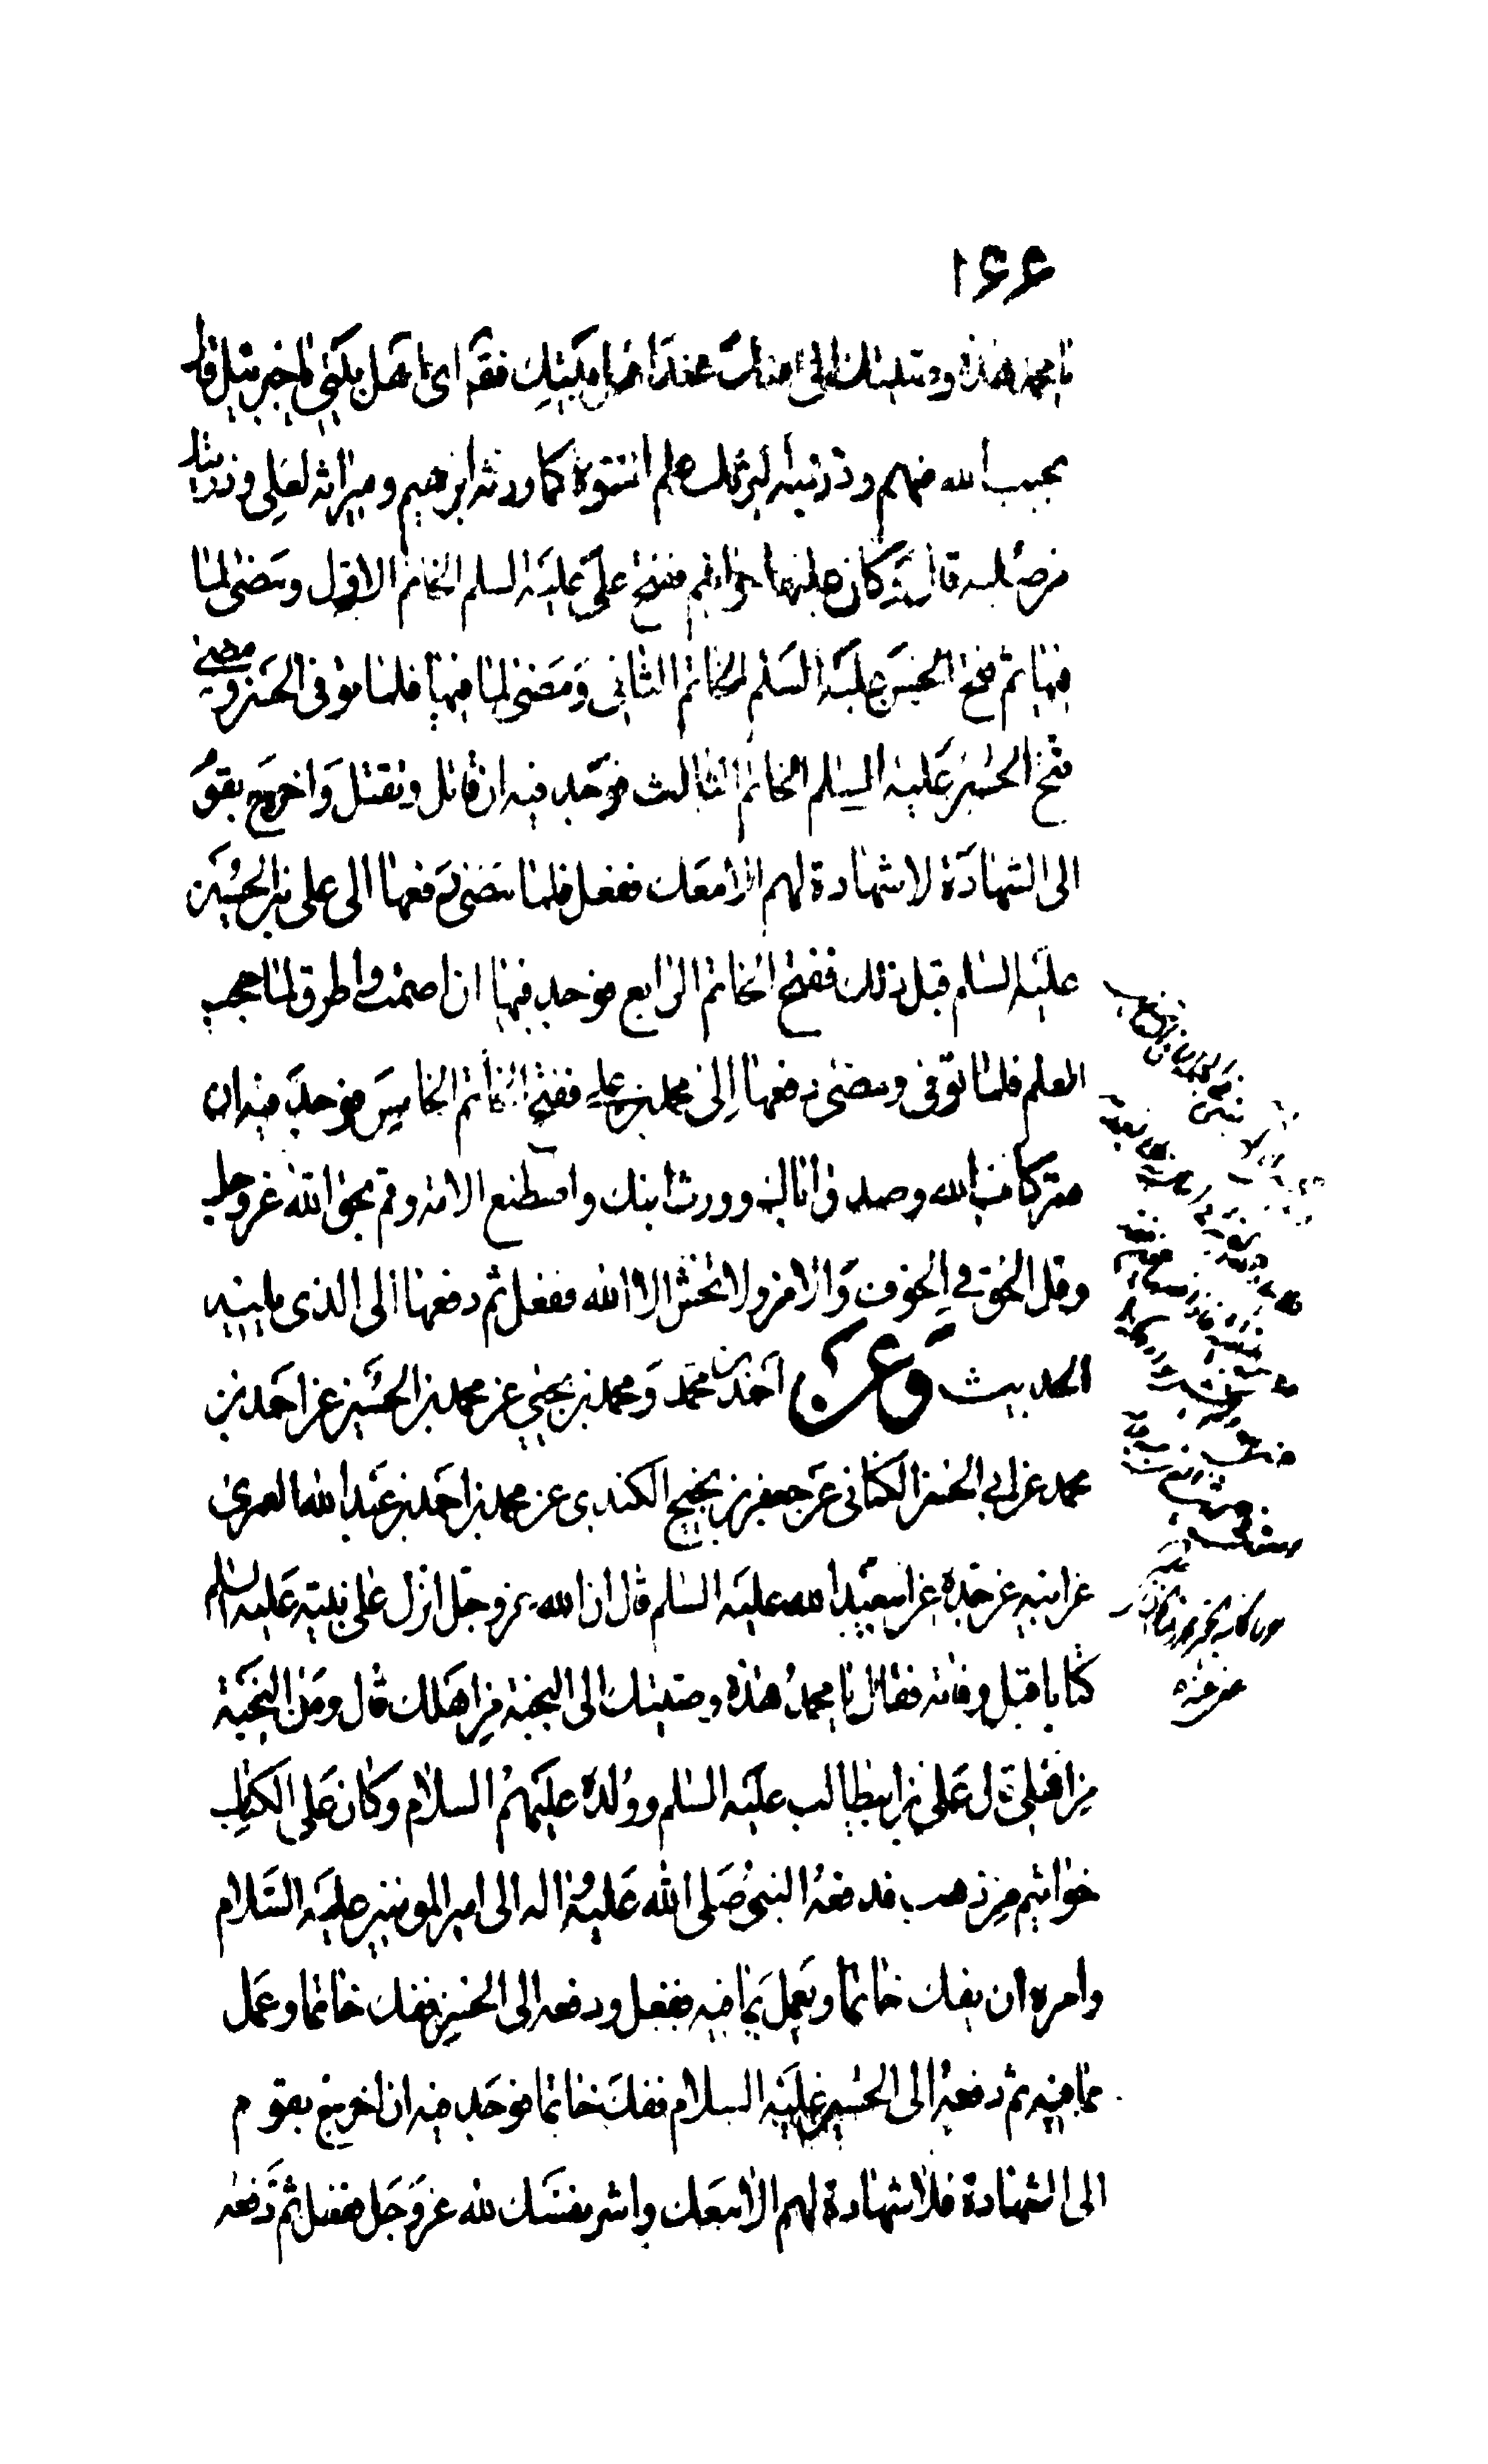 ۱۶۶
يا محمد هذه وصيتك الى امتك عند اهل بيتك فقال اى اهل بيتى يا جبرئيل قال
نجيب الله منهم وذريته ليرثك علم النبوة كما ورثه ابرهيم وميراثه لعلى وذريتك
من صلبه قال وكان عليها خواتيم ففتح على عليه السلم الخاتم الاول ومضى لما
فيها ثم فتح الحسن عليه السلم الخاتم الثانى ومضى لما فيها فلما توفى الحسن ومضى
فتح الحسين عليه السلم الخاتم الثالث فوجد فيه ان قاتل وتقتل واخرج بقوم
الى الشهادة لا شهادة لهم الا معك ففعل فلما مضى دفعها الى على بن الحسين
عليه السلم قبل ذلك ففتح الخاتم الرابع فوجد فيها ان اصمت واطرق لما حجب
العلم فلما توفى ومضى دفعها الى محمد بن على ففتح الخاتم الخامس فوجد فيه ان
فسر كتاب الله وصدق اباك وورث ابنك واصطنع الامة وقم بحق الله عز وجل
وقل الحق فى الخوف والامن ولا تخش الا الله ففعل ثم دفعها الى الذى يليه
الحديث وعن احمد بن محمد ومحمد بن يحيى عن محمد بن الحسين عن احمد بن
محمد عن ابى الحسن الكنانى عن جعفر بن نجيح الكندى عن محمد بن احمد بن عبد الله العمرى
عن ابيه عن جده عن ابيعبد الله عليه السلم قال ان الله عز وجل انزل على نبيه عليه السلم
كتابا قبل وفاته فقال يا محمد هذه وصيتك الى النجبة من اهلك قال ومن النجبة
من اهلى قال على بن ابيطالب عليه السلم وولده عليهم السلام وكان على الكتاب
خواتيم من ذهب فدفعه النبى صلى الله عليه واله الى امير المومنين عليه السلام
وامره ان يفك خاتما ويعمل بما فيه ففعل ودفعه الى الحسن ففك خاتما وعمل
بما فيه ثم دفعه الى الحسين عليه السلام ففك خاتما فوجد فيه ان اخرج بقوم
الى الشهادة فلا شهادة لهم الا معك واشر نفسك لله عز وجل ففعل ثم دفعه